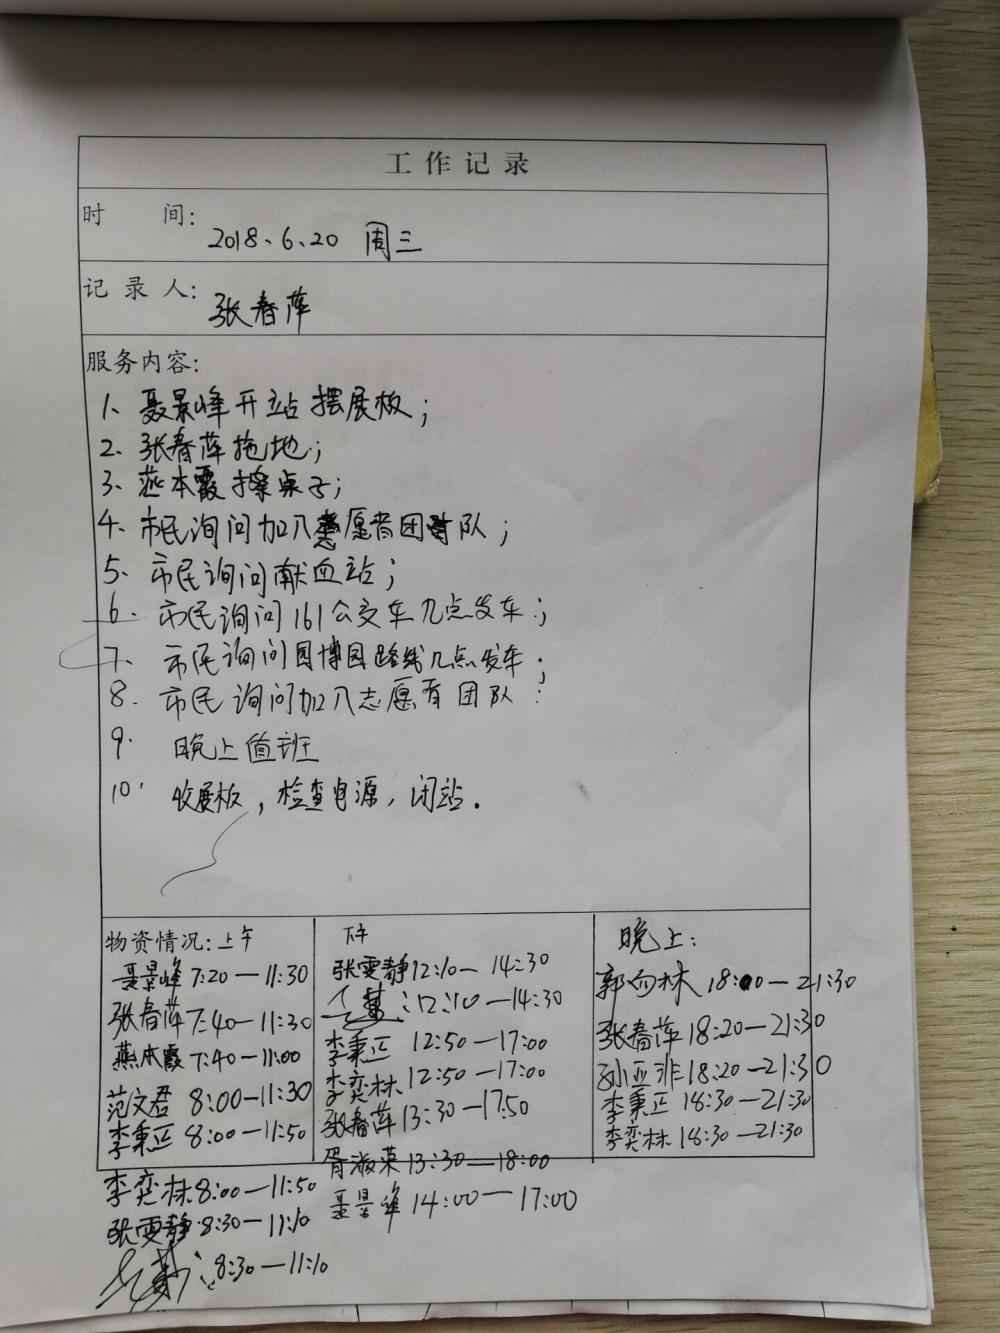 工作记录
时 间: 2018、6、20 周三
记 录 人: 张春萍
服务内容:
1、聂景峰开站摆展板;
2、张春萍拖地;
3、燕本霞擦桌子;
4、市民询问加入志愿者团队;
5、市民询问献血站;
6、市民询问161公交车几点发车;
7、市民询问园博园路线几点发车;
8、市民询问加入志愿者团队:
9、晚上值班
10、收展板,检查电源,闭站.
物资情况:上午
聂景峰 7:20—11:30
张春萍 7:40—11:30
燕本霞 7:40—11:00
范文君 8:00—11:30
李秉正 8:00—11:50
李奕林 8:00—11:50
张雯静 8:30—11:10
8:30—11:10
下午
张雯静 12:10—14:30
12:10—14:30
李秉正 12:50—17:00
李奕林 12:50—17:00
张春萍 13:30—17:50
胥淑荣 13:30—18:00
聂景峰 14:00—17:00
晚上:
郭向林 18:00—21:30
张春萍 18:20—21:30
孙亚非 18:20—21:30
李秉正 18:30—21:30
李奕林 18:30—21:30